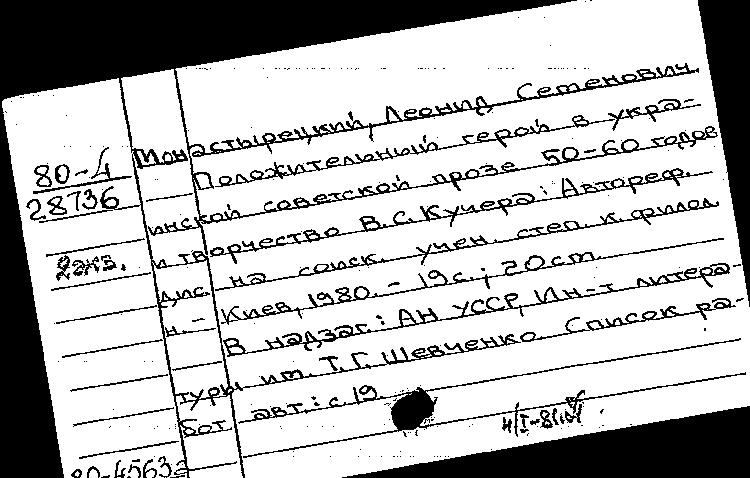 Монастырецкий, Леонид Семенович.
80-4
28736
Положительный герой в укра-
инской советской прозе 50-60 годов
2экз.
и творчество В.С. Кучера: Автореф.
дис. на соиск. учен. степ. к. филол.
н. - Киев, 1980. - 19 с.; 20 cm.
В надзаг.: АН УССР, Ин-т литера-
туры им. Т.Г. Шевченко. Список ра-
бот авт.: с. 19.
80-4563а